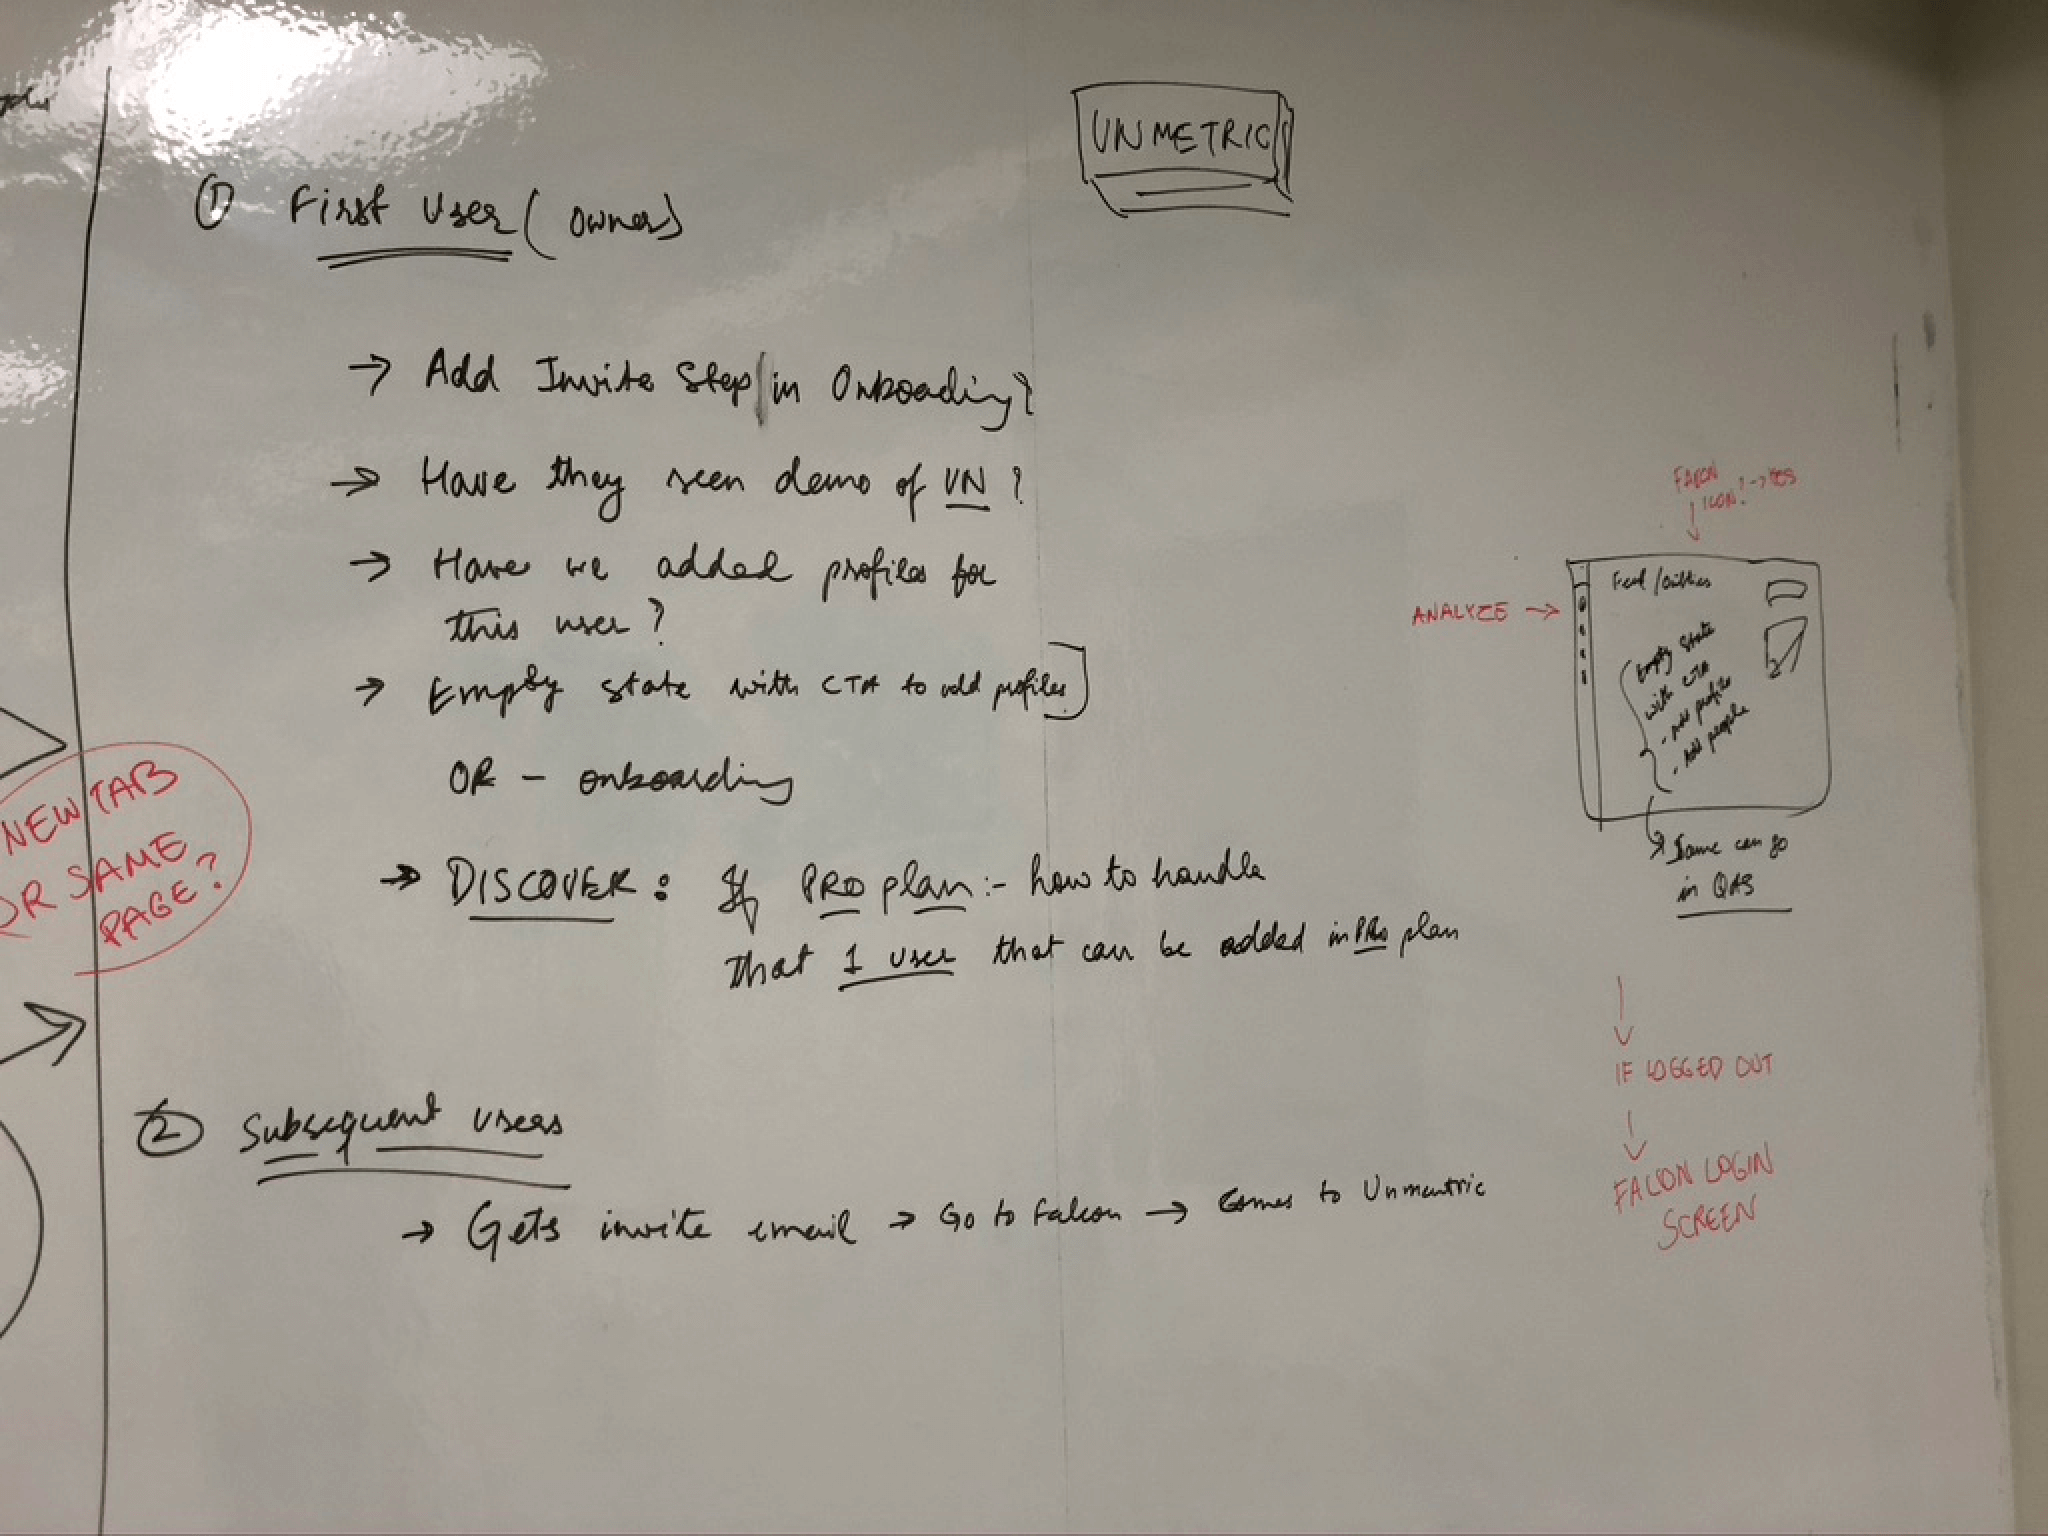 UNMETRIC
① First User (Owner)
→ Add Invite Step in Onboarding?
→ Have they seen demo of UN ?
→ Have we added profiles for
this user ?
→ Empty state with CTA to add profiles
OR - onboarding
→ DISCOVER : If PRO plan :- how to handle
that 1 user that can be added in PRO plan
② Subsequent users
→ Gets invite email → Go to Falcon → Comes to Unmentric
NEW TAB
OR SAME
PAGE?
FALCON
ICON? → YES
ANALYZE →
Feed /
Empty State
with CTA
- Add profile
- Add people
→ Same can go
in QAS
IF LOGGED OUT
FALCON LOGIN
SCREEN